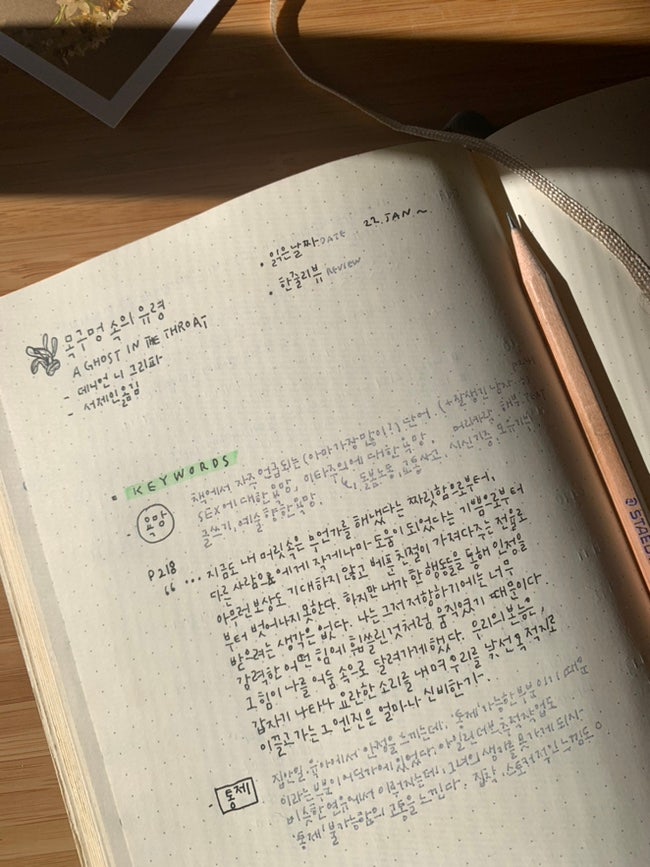 • 읽은날짜 DATE 22. JAN ~
• 한줄리뷰 REVIEW
목구멍 속의 유령
A GHOST IN THE THROAT
- 데니언 니 그리파
- 서제인 옮김
• KEYWORDS
- 욕망
책에서 자주 언급되는 (아마 가장 많이?) 단어 (+잘생긴 남자
SEX에 대한 욕망, 이타주의에 대한 욕망
글쓰기, 예술 향한 욕망. ↳ 돌봄노동, 시신기증, 모유기부
P218
“ ... 지금도 내 머릿속은 무언가를 해냈다는 짜릿함으로부터,
다른 사람에게 작게나마 도움이 되었다는 기쁨으로부터
아무런 보상도 기대하지 않고 베푼 친절이 가져다주는 전율로
부터 벗어나지 못한다. 하지만 내가 한 행동을 통해 인정을
받으려는 생각은 없다. 나는 그저 저항하기에는 너무
강력한 어떤 힘에 휩쓸린 것처럼 움직였기 때문이다.
그 힘이 나를 어둠 속으로 달려가게 했다. 우리의 본능은,
갑자기 나타나 요란한 소리를 내며 우리를 낯선 목적지로
이끌고 가는 그 엔진은 얼마나 신비한가-
- 통제
집안일, 육아에서 안정을 느끼는데, '통제' 가능한 부분이기 때문
이라는 부분이 어딘가에 있었다. 아일린 더브 추적작업도
비슷한 연유에서 이뤄지는데, 그녀의 생각을 못가게 되자
'통제' 불가능함의 고통을 느낀다. 집착, 스토커적인 느낌도
STAED